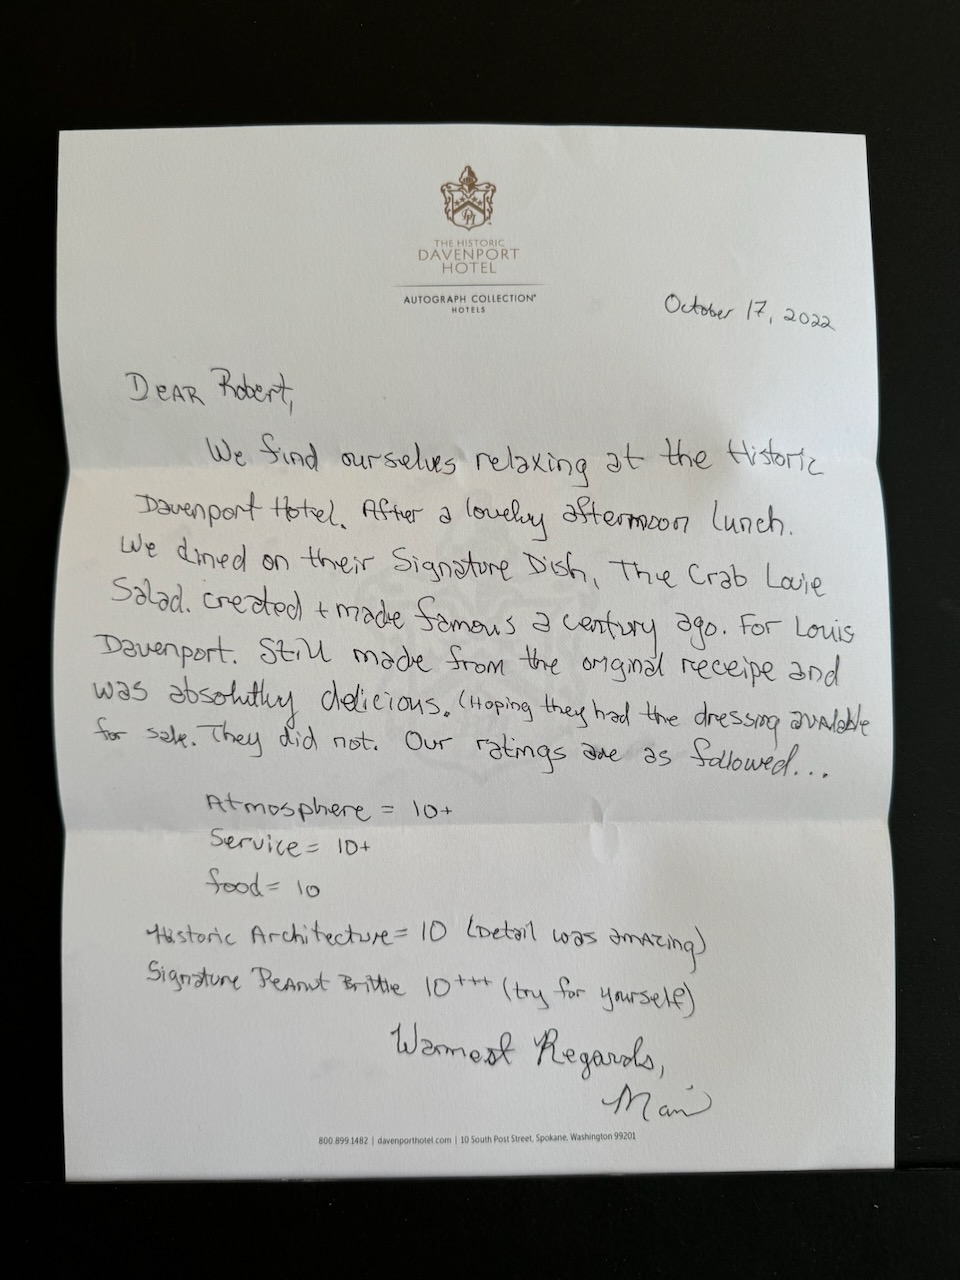 THE HISTORIC
DAVENPORT
HOTEL
AUTOGRAPH COLLECTION®
HOTELS
October 17, 2022
DEAR Robert,
We find ourselves relaxing at the Historic
Davenport Hotel. After a lovely afternoon lunch.
We dined on their Signature Dish, The Crab Louie
Salad. created + made famous a century ago. For Louis
Davenport. Still made from the original receipe and
was absolutly delicious. (Hoping they had the dressing available
for sale. They did not. Our ratings are as followed...
Atmosphere = 10+
Service = 10+
food = 10
Historic Architecture = 10 (Detail was amazing)
Signature Peanut Brittle 10+++ (try for yourself)
Warmest Regards,
800.899.1482 | davenporthotel.com | 10 South Post Street, Spokane, Washington 99201